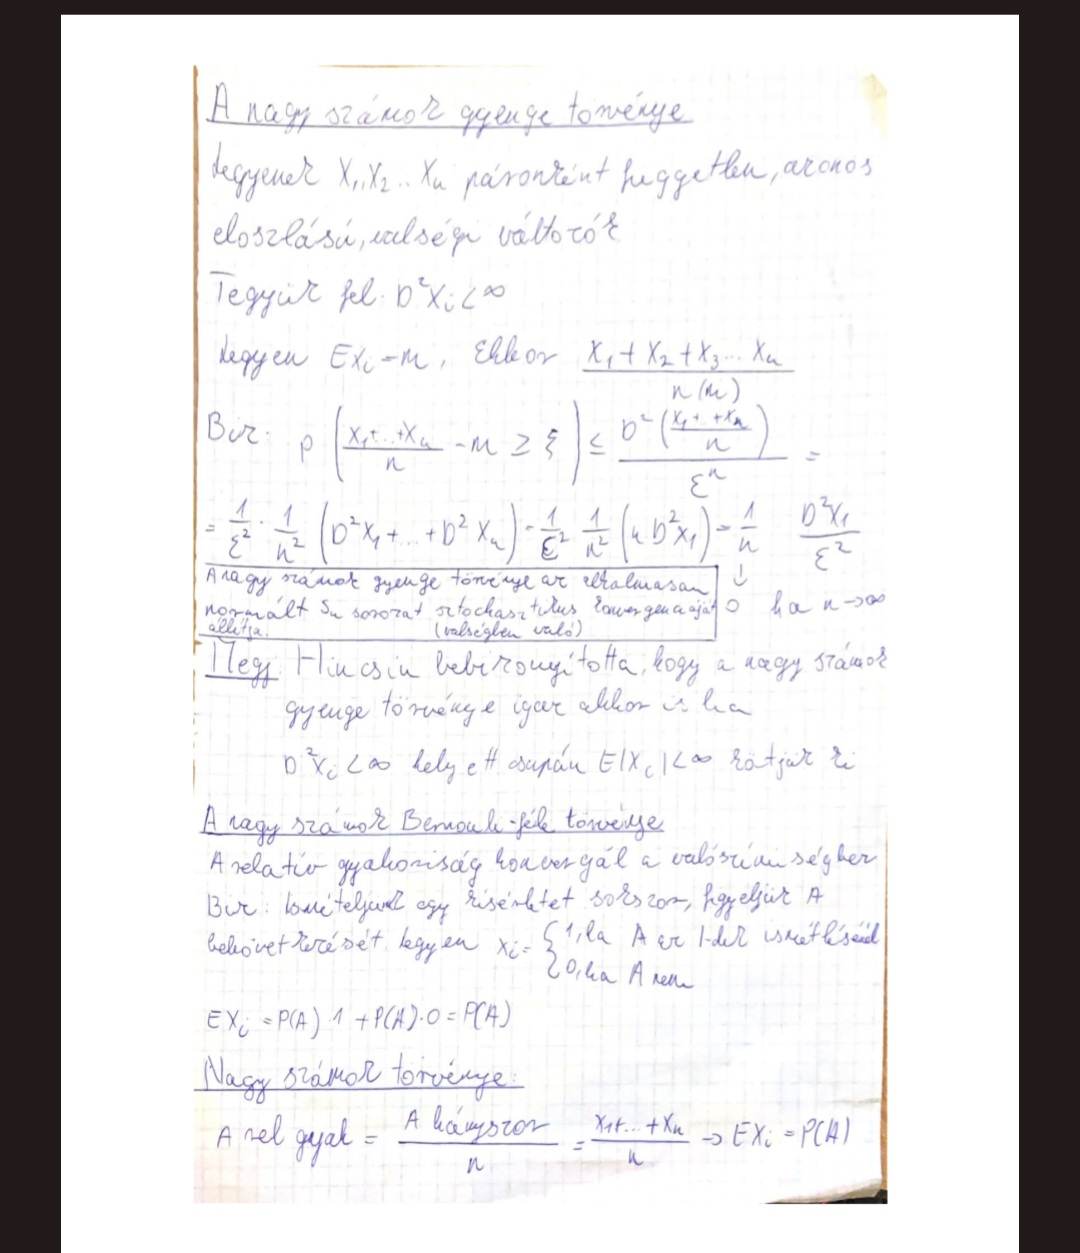 A nagy számok gyenge törvénye
Legyenek X₁, X₂ .. Xₙ páronként független, azonos
eloszlású, valségi változók
Tegyük fel. D²Xᵢ < ∞
Legyen EXᵢ = m, Ekkor (X₁ + X₂ + X₃ ... Xₙ) / n (m)
Biz: P( (X₁ + ... + Xₙ)/n - m ≥ ξ ) ≤ D²( (X₁ + .. + Xₙ)/n ) / εⁿ =
= 1/ε² · 1/n² (D²X₁ + ... + D²Xₙ) = 1/ε² 1/n² (n D²X₁) = 1/n D²X₁/ε²
A nagy számok gyenge törvénye az alkalmasan
normált Sn sorozat sztochasztikus konvergenciáját
állítja. (valségben való)
↓
0 ha n → ∞
Megj: Hincsin bebizonyította, hogy a nagy számok
gyenge törvénye igaz akkor is ha
D²Xᵢ < ∞ helyett csupán E|Xᵢ| < ∞ kötjük ki
A nagy számok Bernouli-féle törvénye
A relatív gyakoriság konvergál a valószínűséghez
Biz: Ismételjünk egy kísérletet sokszor, figyeljük A
bekövetkezését. Legyen xᵢ = { 1, ha A az i-dik ismétlésénél
{ 0, ha A nem
EXᵢ = P(A) · 1 + P(A) · 0 = P(A)
Nagy számok törvénye:
A rel gyak = A hányszor / n = (X₁ + ... + Xₙ) / n → EXᵢ = P(A)